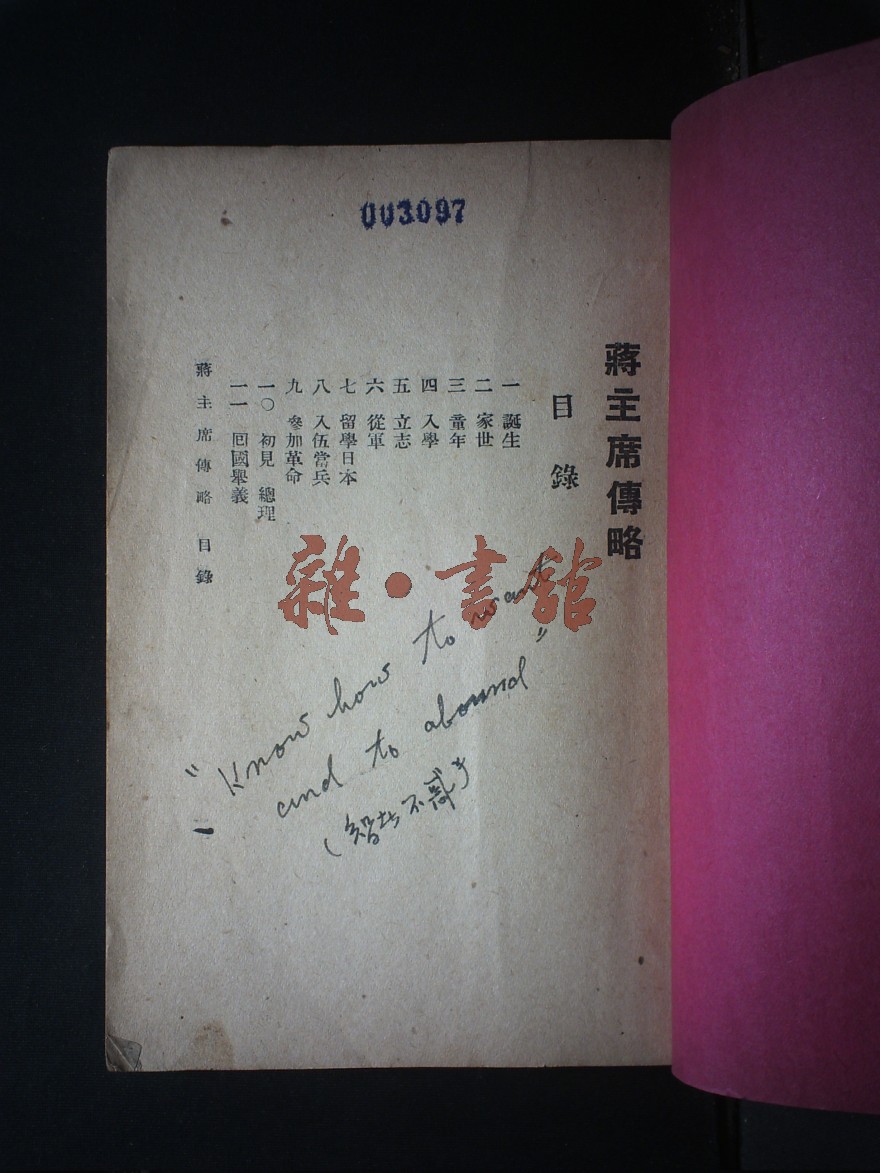 003097
蔣主席傳略
目錄
一 誕生
二 家世
三 童年
四 入學
五 立志
六 從軍
七 留學日本
八 入伍當兵
九 參加革命
一〇 初見 總理
一一 囘國舉義
蔣主席傳略 目錄
一
雜·書館
"Know how to want
and to abound"
(智者不惑)